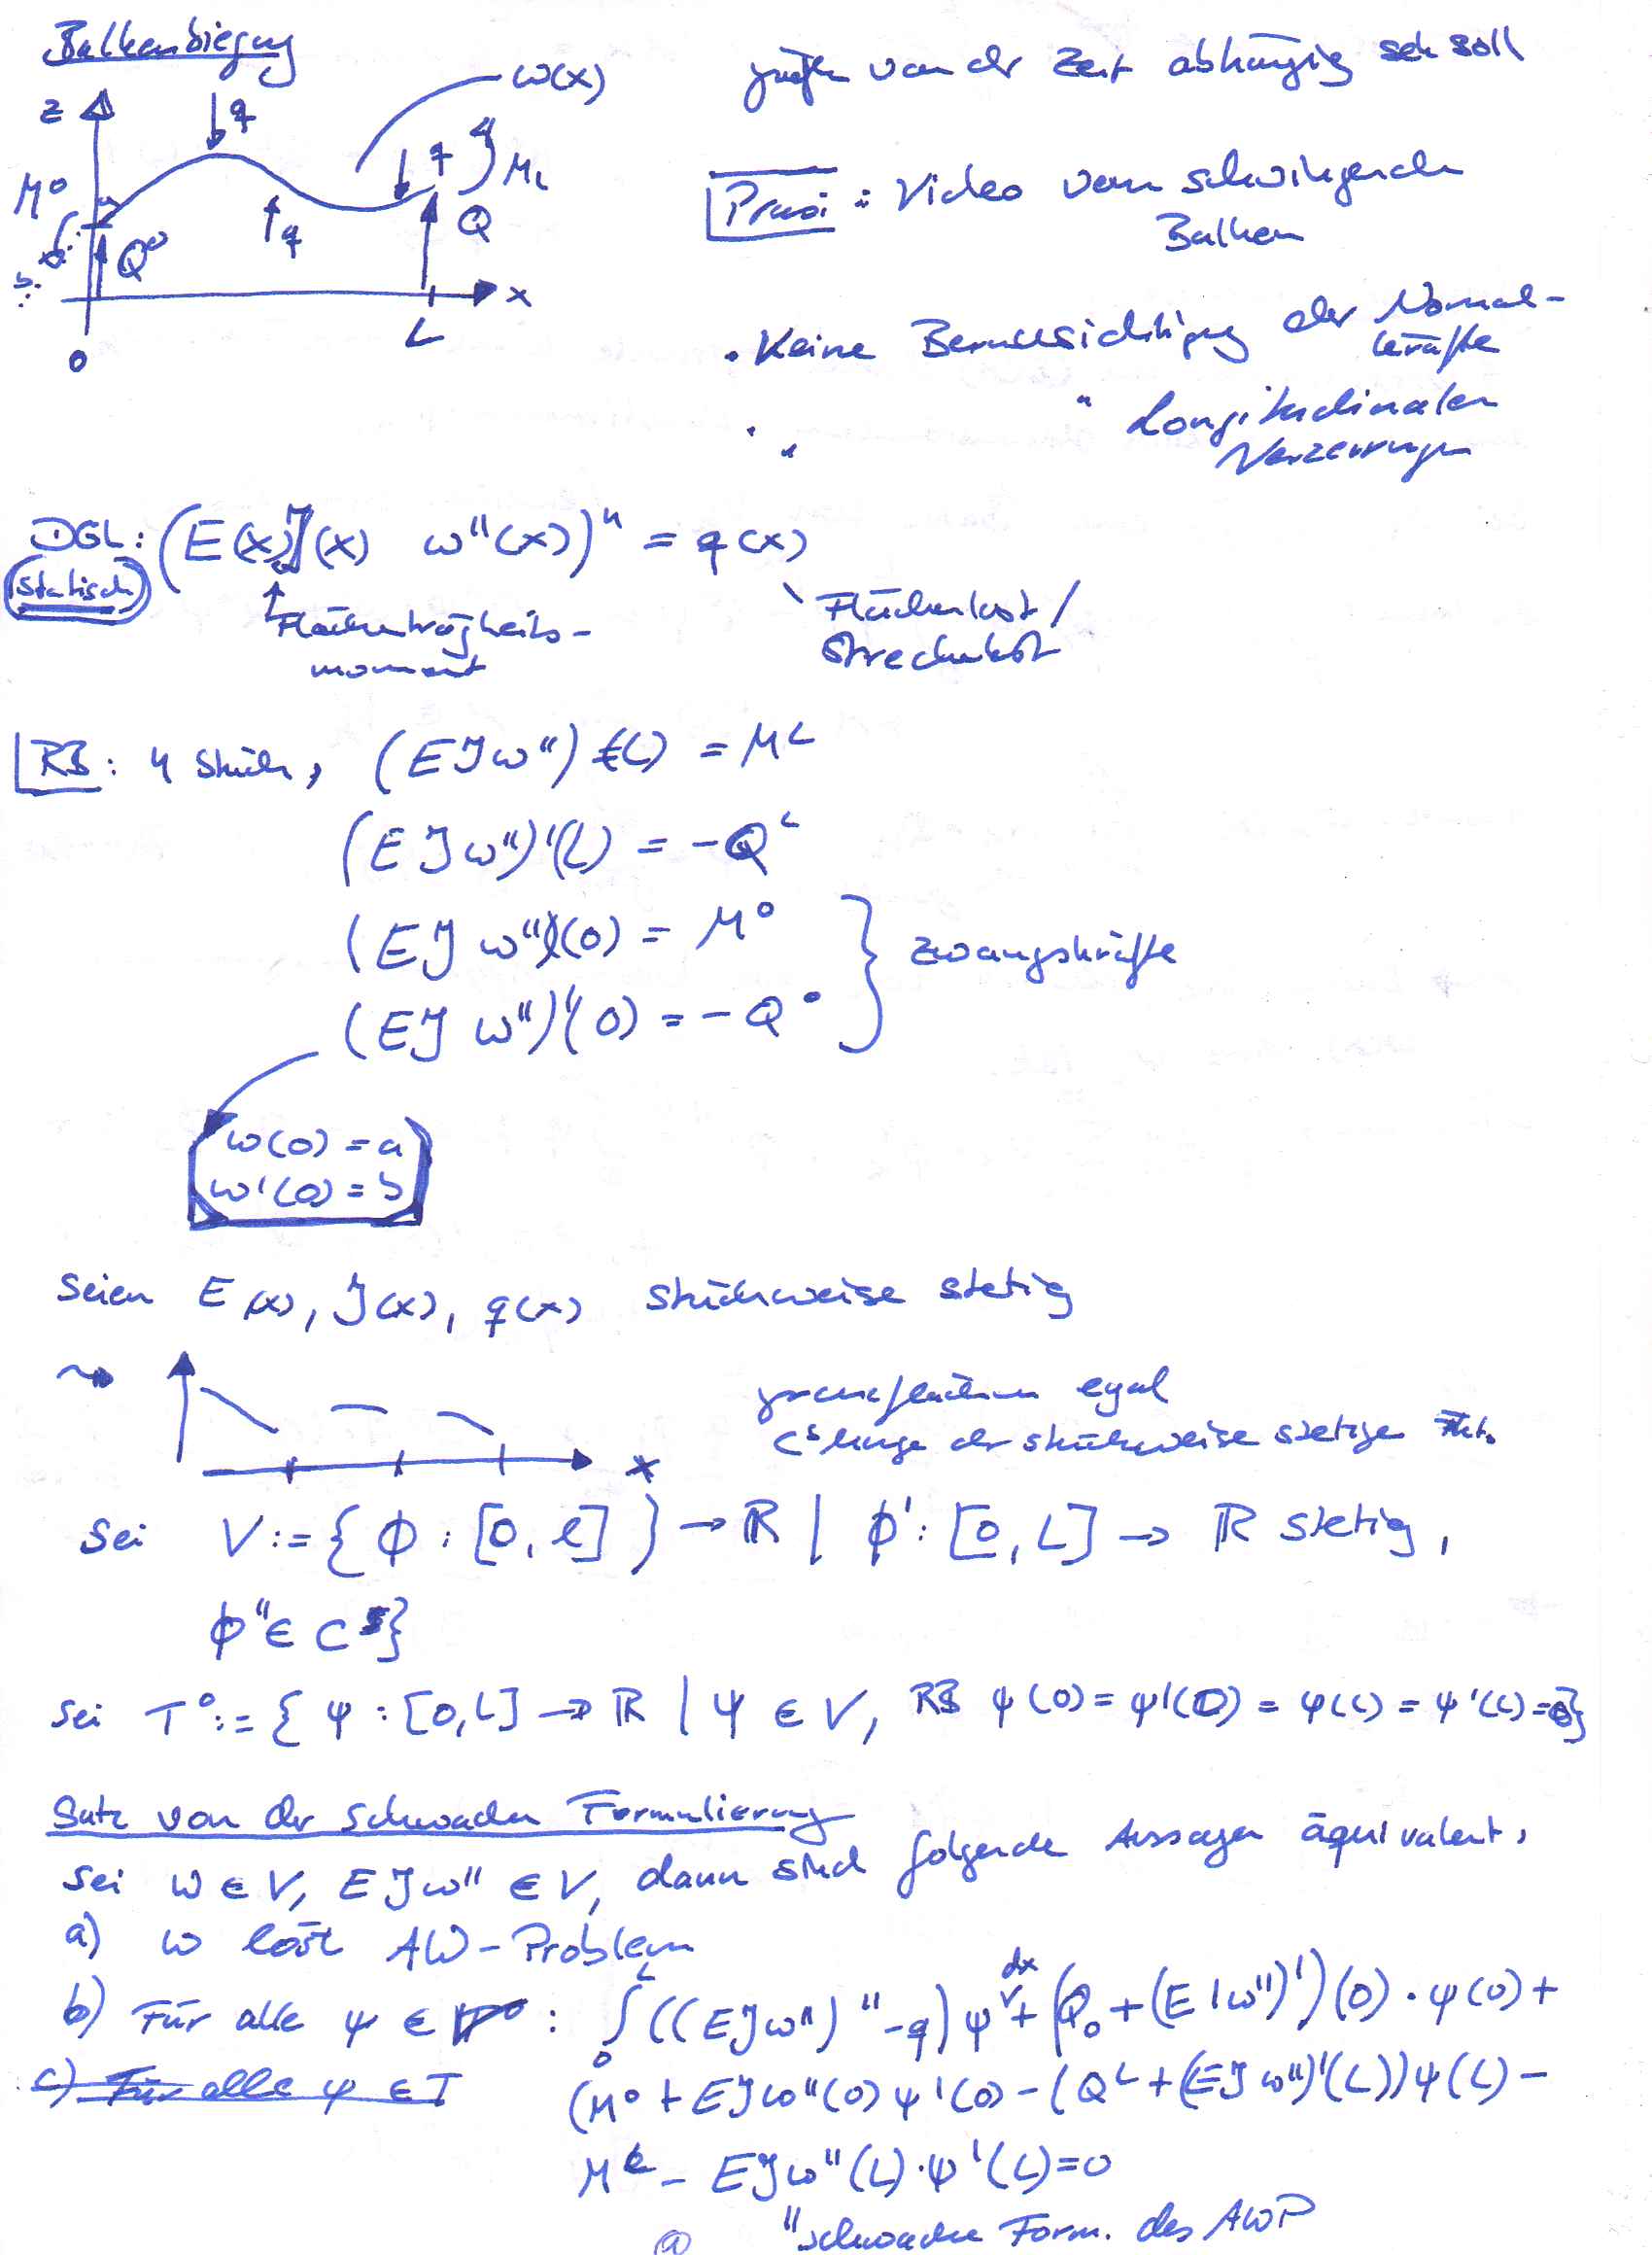 Balkenbiegung
z
q
w(x)
M⁰
q
M_L
Q⁰
q
Q
x
0
L
von der Zeit abhängig sein soll
Praxi: Video vom schwingenden
Balken
• Keine Berücksichtigung der Normal-
kräfte
• " " Longitudinalen
Verzerrungen
DGL: (E(x)J(x) w''(x))'' = q(x)
statisch
Flächenträgheits-
moment
Flächenlast /
Streckenlast
RB: 4 Stück, (EJw'')(L) = M^L
(EJw'')'(L) = -Q^L
(EJw'')(0) = M⁰
(EJw'')'(0) = -Q⁰
Zwangskräfte
w(0) = a
w'(0) = b
Seien E(x), J(x), q(x) stückweise stetig
x
egal
C^s Menge der stückweise stetigen Fkt.
Sei V := { ϕ : [0,l] } → ℝ | ϕ' : [0,L] → ℝ stetig,
ϕ'' ∈ C^s }
Sei T⁰ := { ψ : [0,L] → ℝ | ψ ∈ V, RB ψ(0) = ψ'(0) = ψ(L) = ψ'(L) = 0 }
Satz von der schwachen Formulierung
Sei w ∈ V, EJw'' ∈ V, dann sind folgende Aussagen äquivalent.
a) w löst AW-Problem
b) Für alle ψ ∈ : ∫₀^L ((EJw'')'' - q) ψ dx + (Q₀ + (EIw'')')(0) · ψ(0) +
c) Für alle ψ ∈ T
(M⁰ + EJw''(0) ψ'(0) - (Q^L + (EJw'')'(L)) ψ(L) -
M^L - EJw''(L) · ψ'(L) = 0
"schwache Form. des AWP